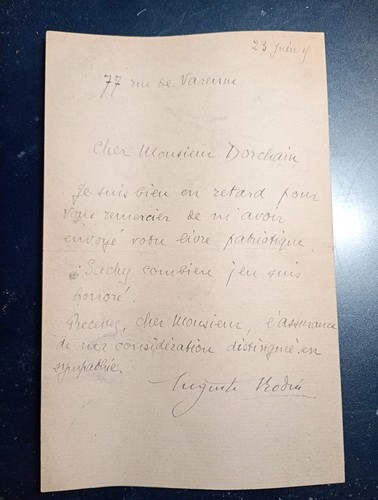 23 juin
77 rue de Varenne
Cher Monsieur Dorchain
Je suis bien en retard pour
vous remercier de m'avoir
envoyé votre livre patriotique
Sachez combien j'en suis
honoré.
Recevez, cher Monsieur, l'assurance
de ma considération distingué en
sympathie.
Auguste Rodin